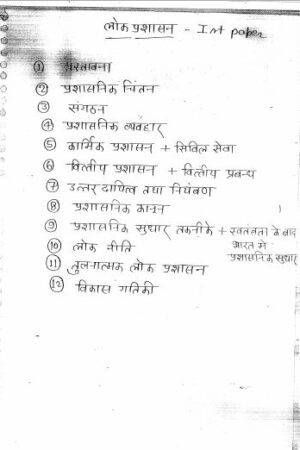 लोक प्रशासन - Ist paper
① प्रस्तावना
② प्रशासनिक चिंतन
③ संगठन
④ प्रशासनिक व्यवहार
⑤ कार्मिक प्रशासन + सिविल सेवा
⑥ वित्तीय प्रशासन + वित्तीय प्रबन्ध
⑦ उत्तरदायित्व तथा नियंत्रण
⑧ प्रशासनिक कानून
⑨ प्रशासनिक सुधार तकनीके + स्वतंत्रता के बाद
भारत मे
प्रशासनिक सुधार
⑩ लोक नीति
⑪ तुलनात्मक लोक प्रशासन
⑫ विकास गतिकी